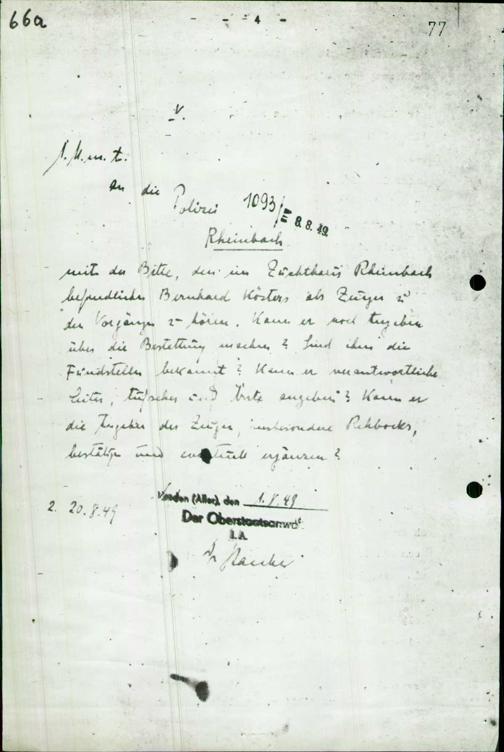 66a
- 4 -
77
V.
1. U.m.A.
an die Polizei
1093/ 8.8.49
Rheinbach
mit der Bitte, den im Zuchthaus Rheinbach
befindlichen Bernhard Kösters als Zeugen zu
den Vorgängen zu hören. Kann er noch Angaben
über die Bestattung machen? Sind ihm die
Fundstellen bekannt? Kann er verantwortliche
Leiter, und Ärzte angeben? Kann er
die Angaben des Zeugen, insbesondere Rehbocks,
bestätigen und eventuell ergänzen?
2. 20.8.49
Verden (Aller), den 1.8.49
Der Oberstaatsanwalt
I.A.